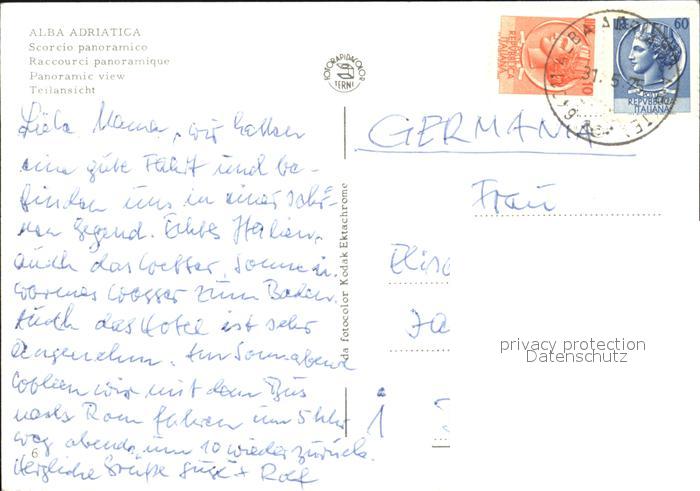 ALBA ADRIATICA
Scorcio panoramico
Raccourci panoramique
Panoramic view
Teilansicht
Liebe Mama, wir hatten
eine gute Fahrt und be-
finden uns in einer schö-
nen Gegend. Echtes Italien,
auch das Wetter, Sonne u.
warmes Wasser zum Baden.
Auch das Hotel ist sehr
angenehm. Am Sonnabend
wollen wir mit dem Bus
nach Rom fahren um 5 Uhr
weg abends um 10 wieder zurück.
Herzliche Grüße Susi + Rolf
6
FOTORAPIDACOLOR
TERNI
da fotocolor Kodak Ektachrome
REPUBBLICA
ITALIANA
10
60
REPUBBLICA
ITALIANA
31.5.
GERMANIA
Frau
Elisa
privacy protection
Datenschutz